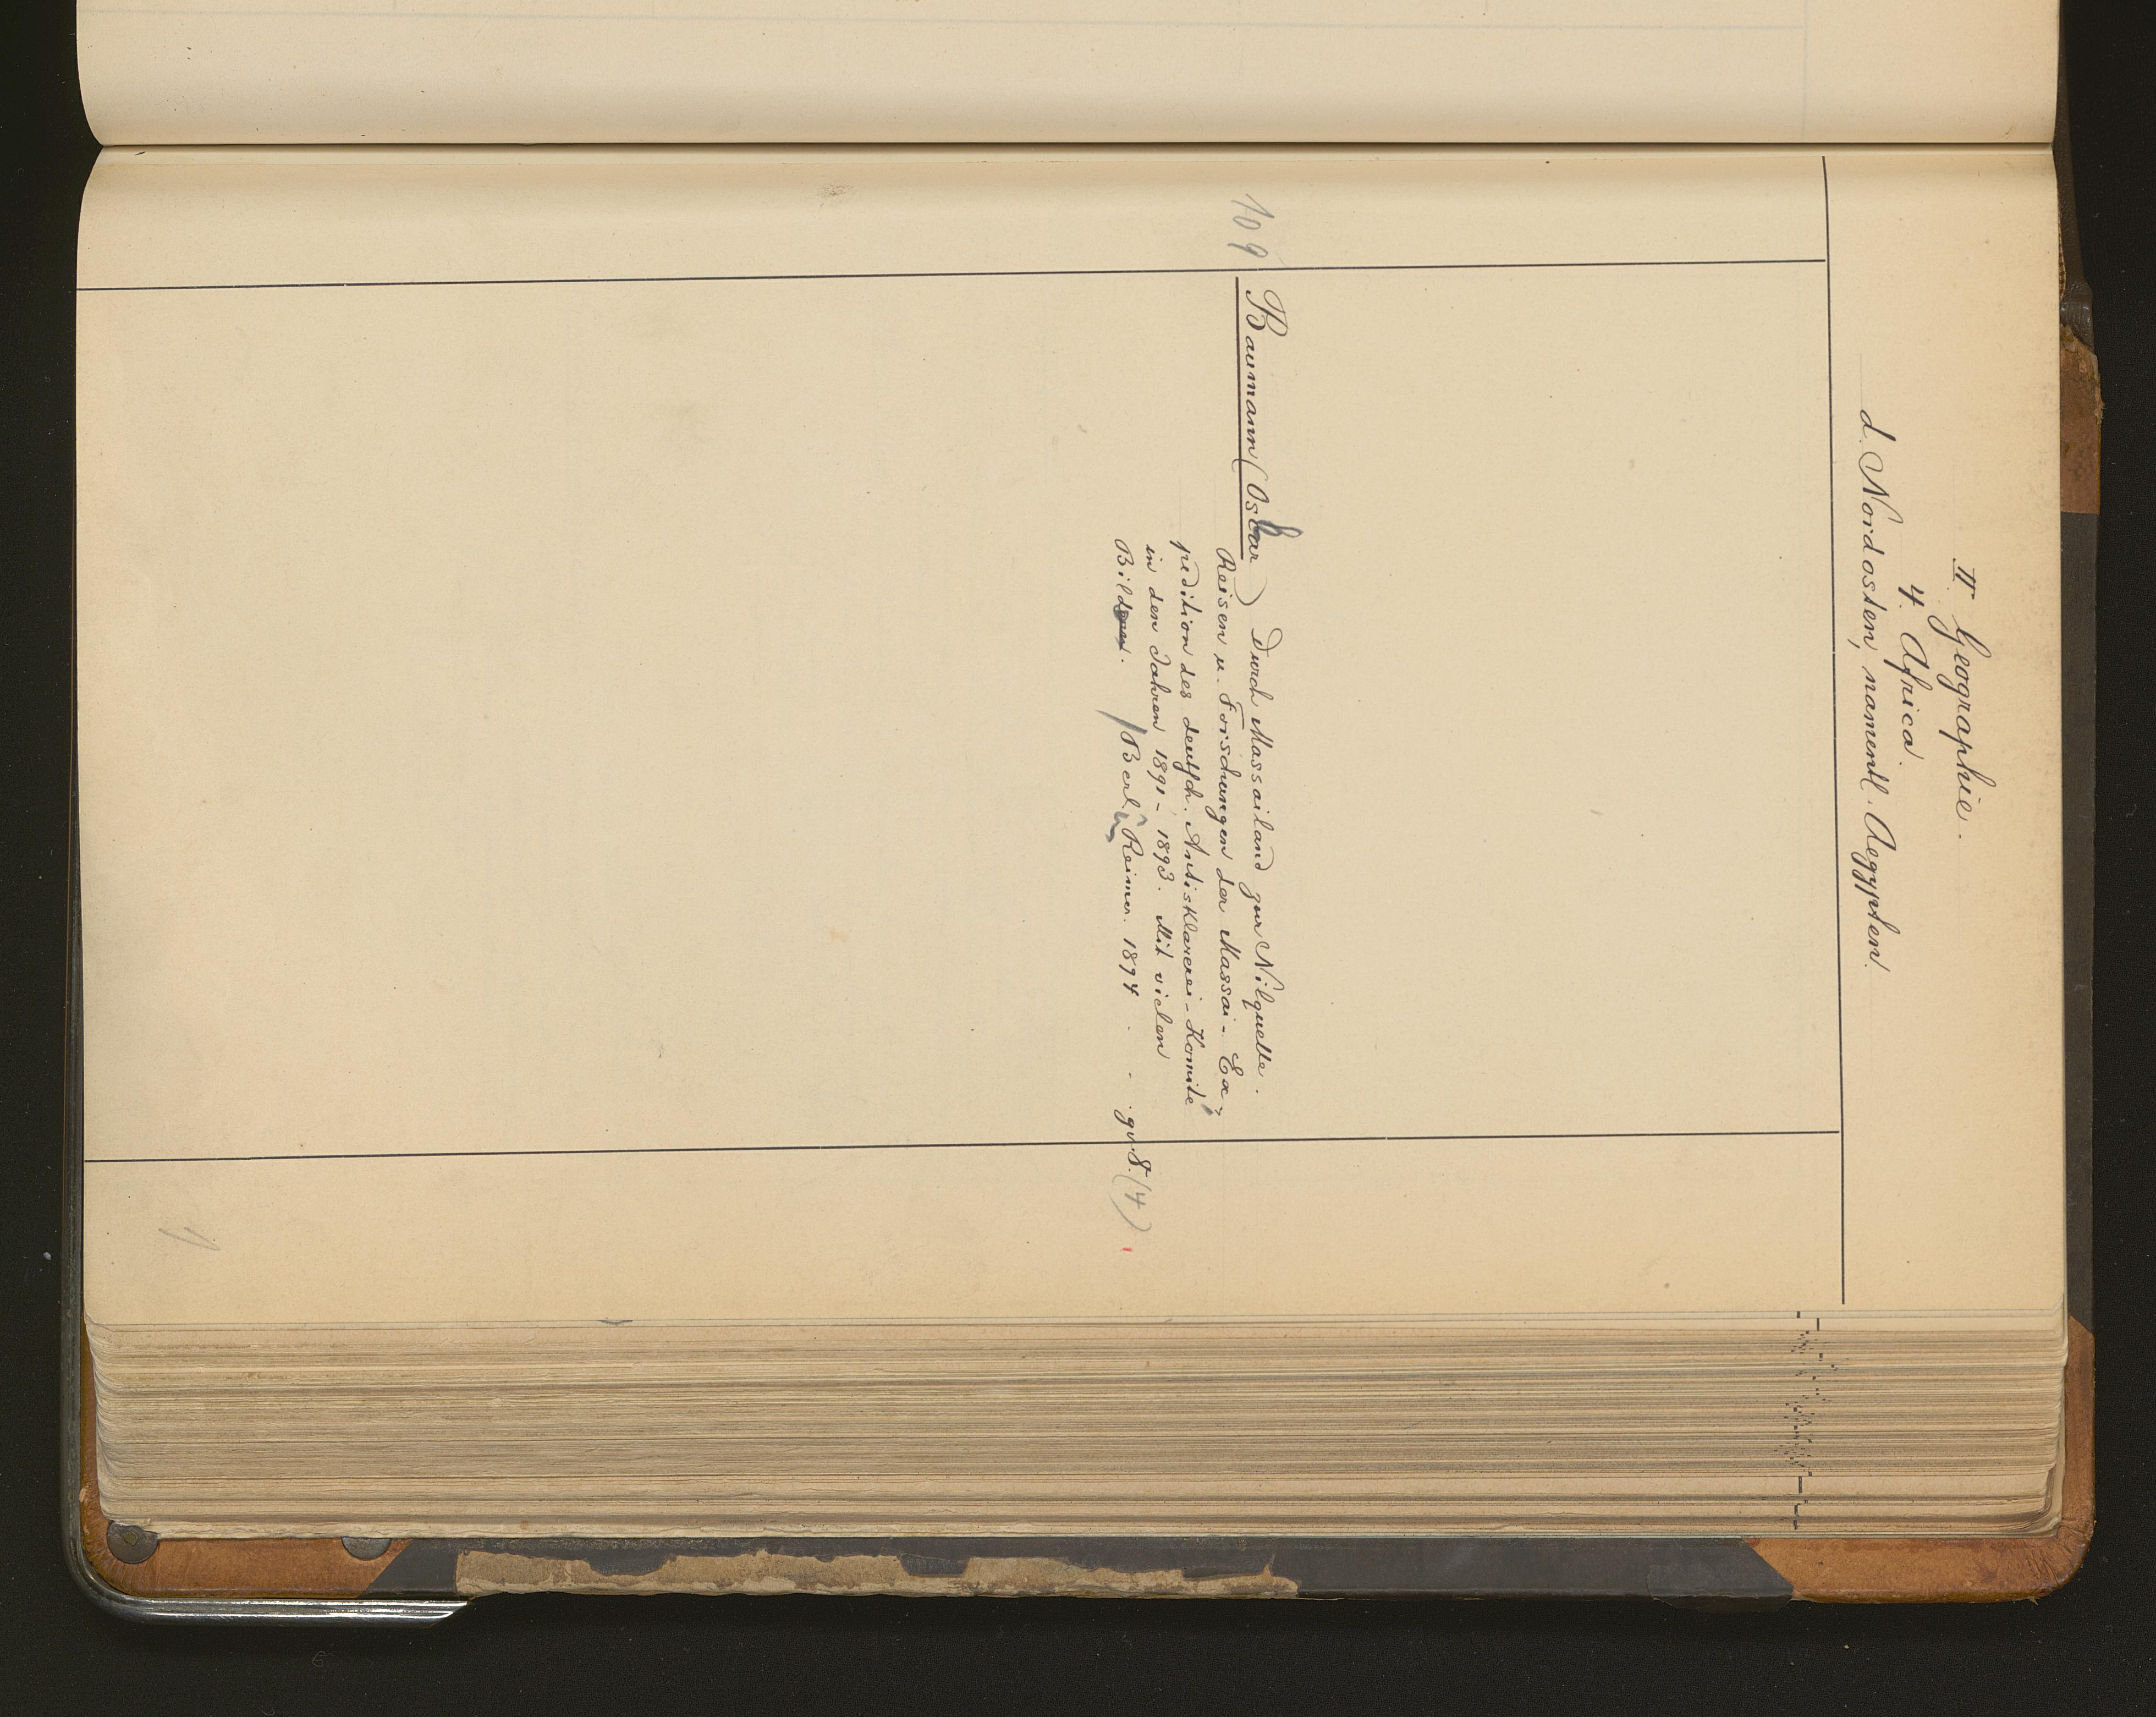 II. Geographie.
4. Africa.
d. Nordosten, namentl. Aegypten.
109
Baumann (Oskar) Durch Massailand zur Nilquelle.
Reisen u. Forschungen der Massai-Ex-
pedition des deutsch. Antisklaverei-Komite
in den Jahren 1891-1893. Mit vielen
Bildern. / Berlin Reimer. 1894 . . . gr 8. (4)